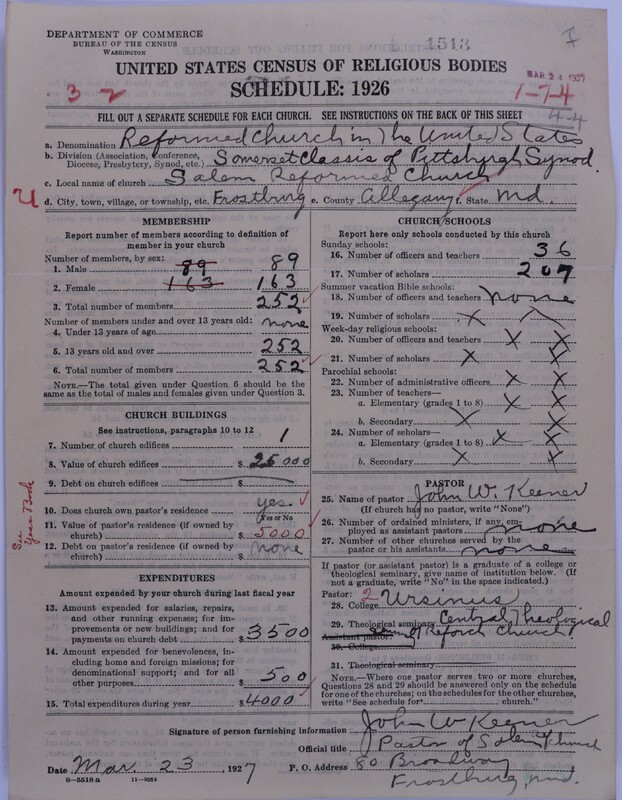 DEPARTMENT OF COMMERCE
BUREAU OF THE CENSUS
WASHINGTON
1513
I
MAR 24 1927
UNITED STATES CENSUS OF RELIGIOUS BODIES
SCHEDULE: 1926
3 2
1-7-4
4-4
FILL OUT A SEPARATE SCHEDULE FOR EACH CHURCH. SEE INSTRUCTIONS ON THE BACK OF THIS SHEET
a. Denomination Reformed Church in The United States
b. Division (Association, Conference, Diocese, Presbytery, Synod, etc.) Somerset Classis of Pittsburgh Synod.
c. Local name of church Salem Reformed Church
d. City, town, village, or township, etc. Frostburg e. County Allegany f. State Md.
MEMBERSHIP
Report number of members according to definition of
member in your church
Number of members, by sex:
1. Male 89 89
2. Female 163 163
3. Total number of members 252
Number of members under and over 13 years old:
4. Under 13 years of age none
5. 13 years old and over 252
6. Total number of members 252
NOTE.—The total given under Question 6 should be
same as the total of males and females given under Question 3.
CHURCH BUILDINGS
See instructions, paragraphs 10 to 12
7. Number of church edifices 1
8. Value of church edifices $ 25000
9. Debt on church edifices $
10. Does church own pastor's residence? yes
(Yes or No)
11. Value of pastor's residence (if owned by
church) $ 5000
12. Debt on pastor's residence (if owned by
church) $ none
See
Year Book
EXPENDITURES
Amount expended by your church during last fiscal year
13. Amount expended for salaries, repairs,
and other running expenses; for im-
provements or new buildings; and for
payments on church debt $ 3500
14. Amount expended for benevolences,
including home and foreign missions; for
denominational support; and for all
other purposes $ 500
15. Total expenditures during year $ 4000
CHURCH SCHOOLS
Report here only schools conducted by this church
Sunday schools:
16. Number of officers and teachers 36
17. Number of scholars 207
Summer vacation Bible schools:
18. Number of officers and teachers none
19. Number of scholars X X
Week-day religious schools:
20. Number of officers and teachers X X
21. Number of scholars X X
Parochial schools:
22. Number of administrative officers X X
23. Number of teachers—
a. Elementary (grades 1 to 8) X X
b. Secondary X X
24. Number of scholars—
a. Elementary (grades 1 to 8) X X
b. Secondary X X
PASTOR
25. Name of pastor John W. Keener
(If church has no pastor, write "None")
26. Number of ordained ministers, if any, em-
ployed as assistant pastors none
27. Number of other churches served by the
pastor or his assistants none
If pastor (or assistant pastor) is a graduate of a college or
theological seminary, give name of institution below. (If
not a graduate, write "No" in the space indicated.)
Pastor: 2
28. College Ursinus
29. Theological seminary Central Theological
Assistant pastor: of Reform Church
30. College
31. Theological seminary
NOTE.—Where one pastor serves two or more churches,
Questions 28 and 29 should be answered only on the schedule
for one of the churches; on the schedules for the other churches,
write "See schedule for church."
Signature of person furnishing information John W Keener
Official title Pastor of Salem Church
Date Mar. 23, 1927 P. O. Address 80 Broadway
Frostburg, Md.
8-5518 a 11-9054